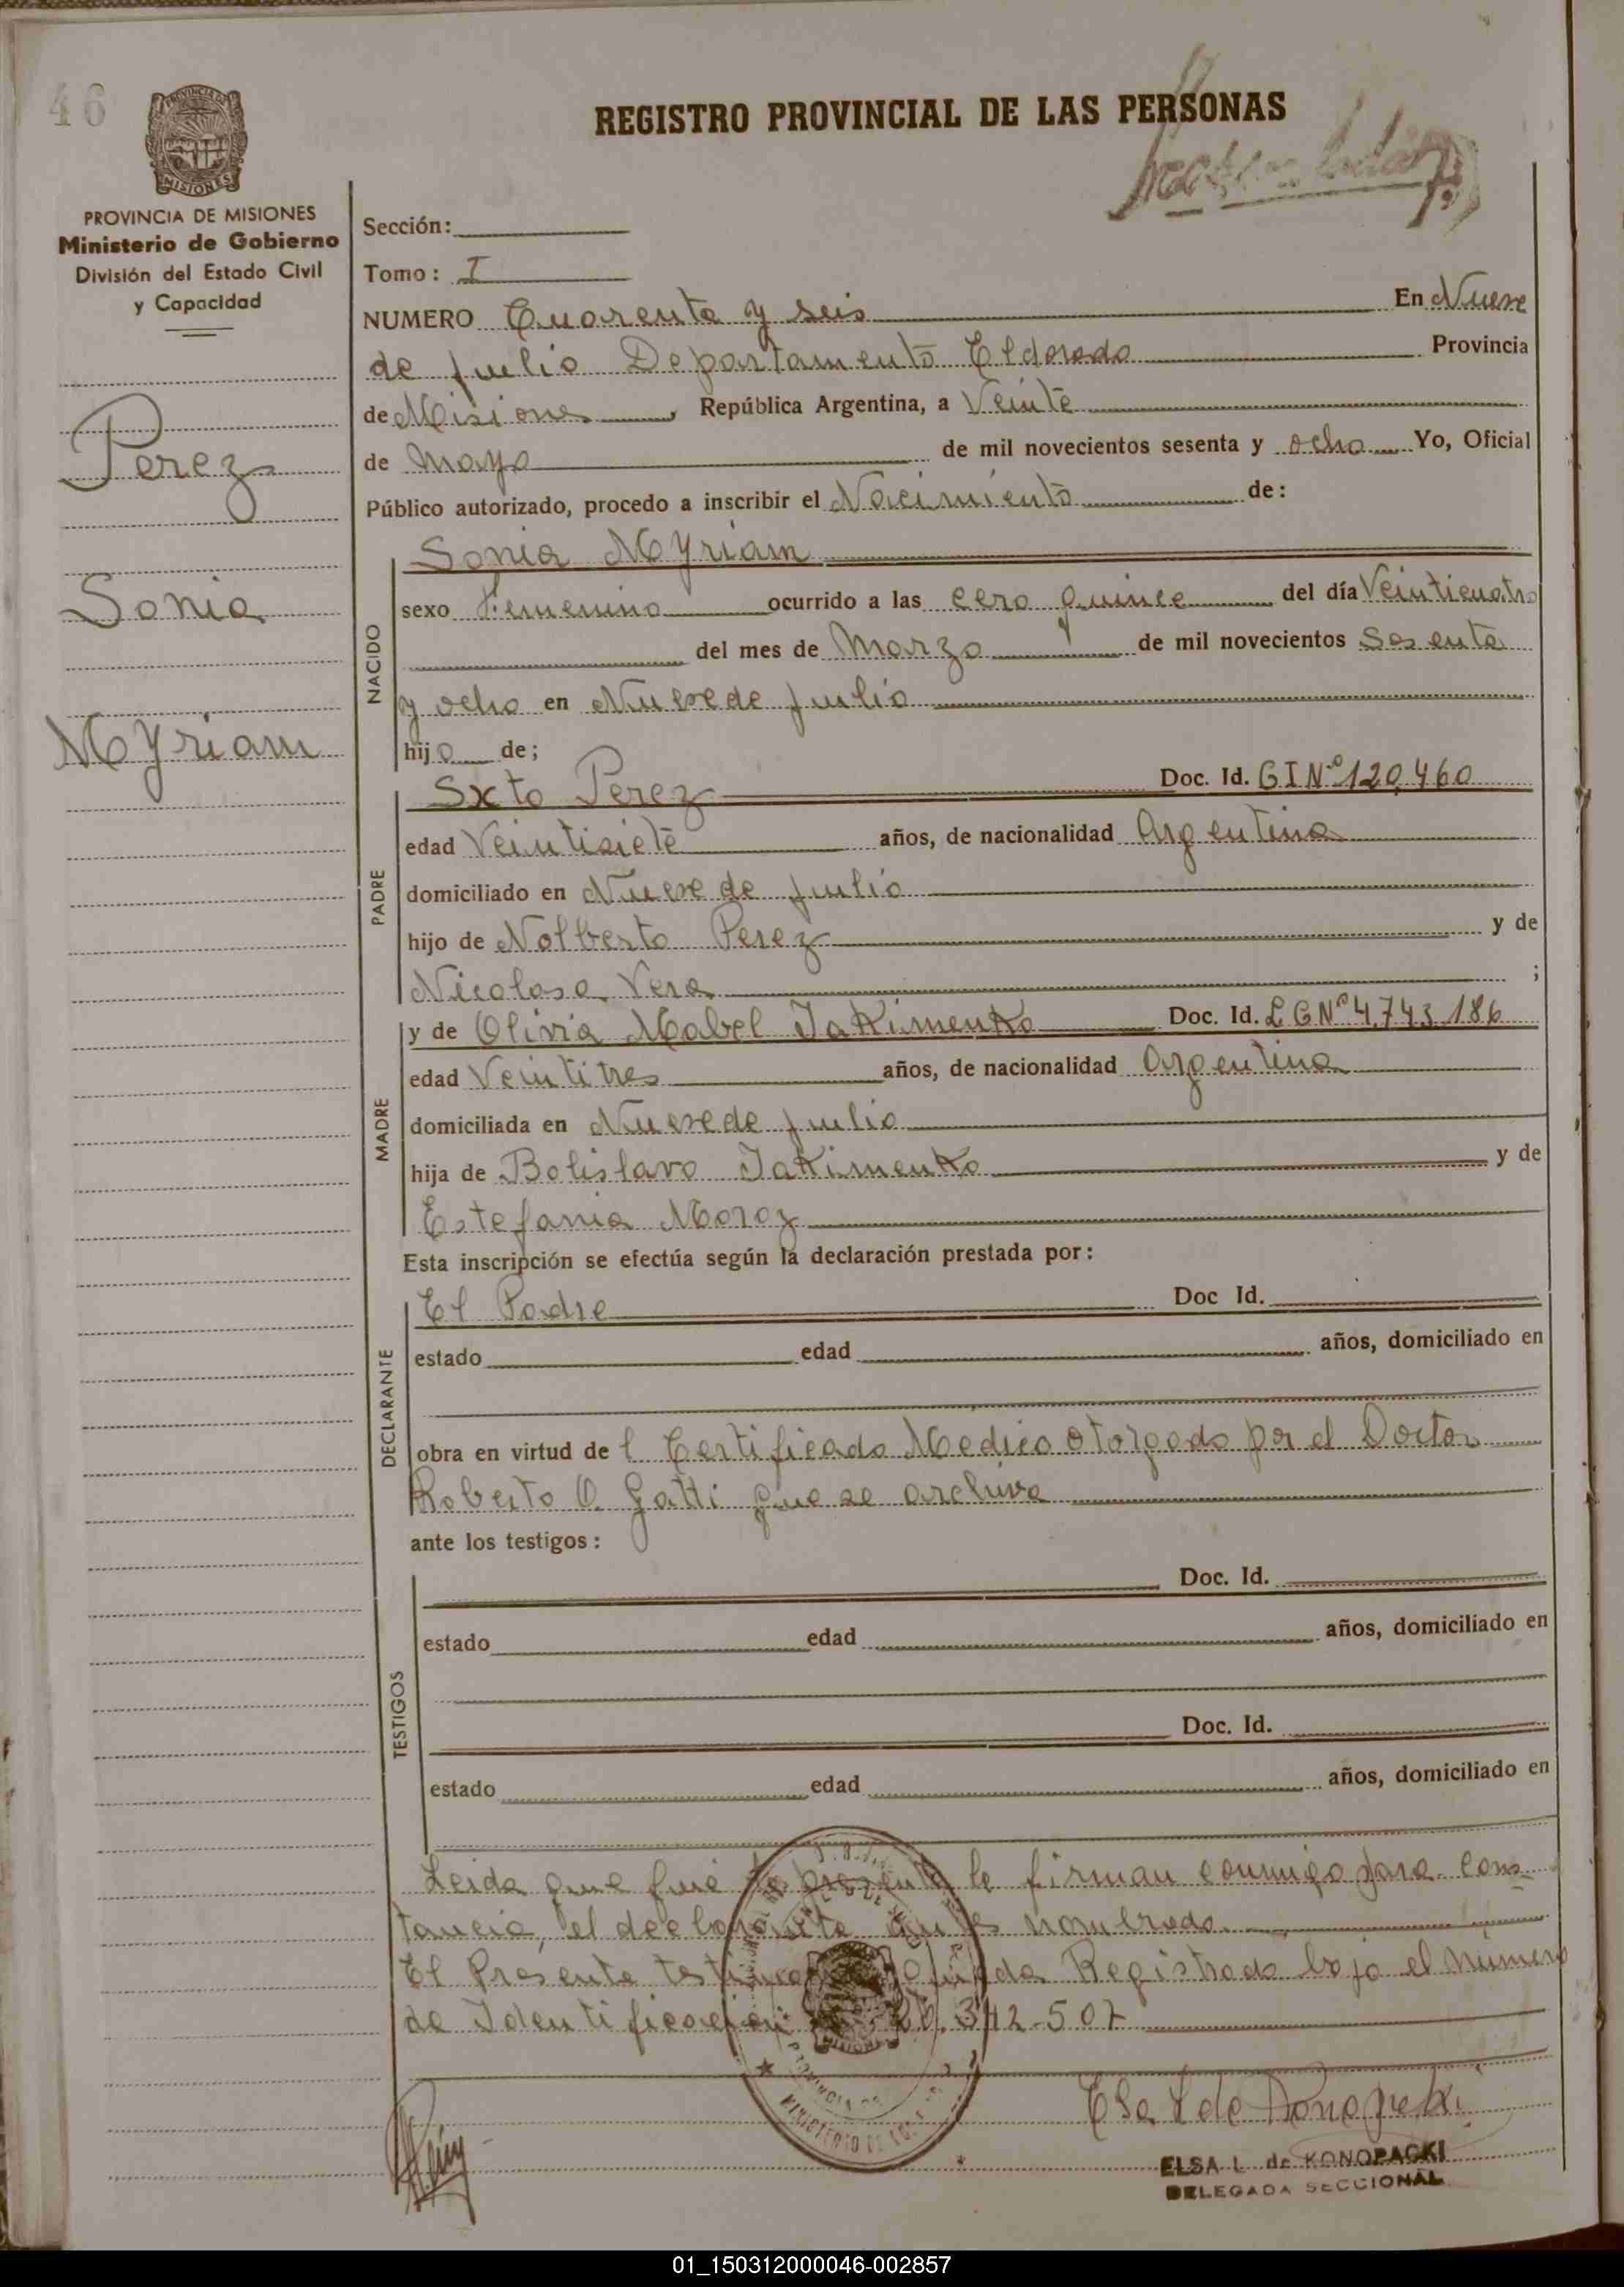 46
PROVINCIA DE MISIONES
REGISTRO PROVINCIAL DE LAS PERSONAS
PROVINCIA DE MISIONES
Ministerio de Gobierno
División del Estado Civil
y Capacidad
Perez
Sonia
Myriam
Sección:
Tomo: I
NUMERO Cuarenta y seis En Nueve
de Julio Departamento Eldorado Provincia
de Misiones, República Argentina, a Veinte
de Mayo de mil novecientos sesenta y ocho Yo, Oficial
Público autorizado, procedo a inscribir el Nacimiento de:
NACIDO
Sonia Myriam
sexo Femenino ocurrido a las cero quince del día Veinticuatro
del mes de Marzo de mil novecientos Sesenta
y ocho en Nueve de Julio
hija de;
PADRE
Sxto Perez Doc. Id. C I Nº 120,460
edad Veintisiete años, de nacionalidad Argentina
domiciliado en Nueve de Julio
hijo de Nolberto Perez y de
Nicolasa Vera ;
MADRE
y de Olivia Mabel Jakimenko Doc. Id. L C Nº 4.743.186
edad Veintitres años, de nacionalidad Argentina
domiciliada en Nueve de Julio
hija de Bolislavo Jakimenko y de
Estefania Moroz
Esta inscripción se efectúa según la declaración prestada por:
DECLARANTE
El Padre Doc Id.
estado edad años, domiciliado en
obra en virtud de l Certificado Medico otorgado por el Doctor
Roberto O. Gatti que se archiva
ante los testigos:
TESTIGOS
Doc. Id.
estado edad años, domiciliado en
Doc. Id.
estado edad años, domiciliado en
Leida que fué la presente la firman conmigo para cons-
tancia, el declarante antes nombrado.
El Presente testimonio queda Registrado bajo el número
de Identificación 20.342-507
Elsa L de Konopacki
ELSA L de KONOPACKI
DELEGADA SECCIONAL
01_150312000046-002857